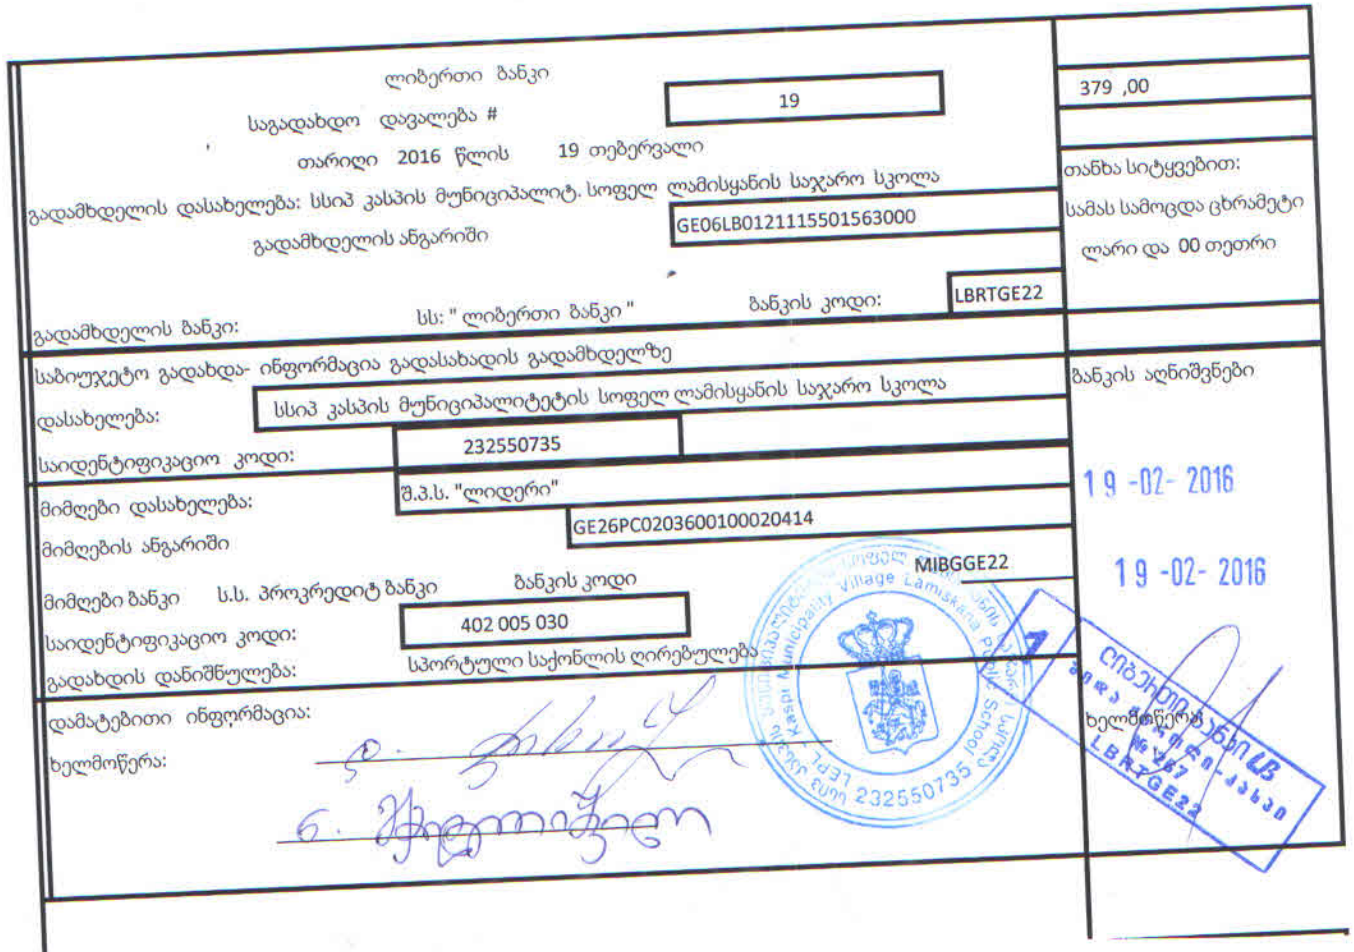 ლიბერთი ბანკი
საგადახდო დავალება # 19
თარიღი 2016 წლის 19 თებერვალი
გადამხდელის დასახელება: სსიპ კასპის მუნიციპალიტ. სოფელ ლამისყანის საჯარო სკოლა
გადამხდელის ანგარიში GE06LB0121115501563000
გადამხდელის ბანკი: სს: " ლიბერთი ბანკი " ბანკის კოდი: LBRTGE22
379 ,00
თანხა სიტყვებით:
სამას სამოცდა ცხრამეტი
ლარი და 00 თეთრი
საბიუჯეტო გადახდა- ინფორმაცია გადასახადის გადამხდელზე
დასახელება: სსიპ კასპის მუნიციპალიტეტის სოფელ ლამისყანის საჯარო სკოლა
საიდენტიფიკაციო კოდი: 232550735
მიმღები დასახელება: შ.პ.ს. "ლიდერი"
მიმღების ანგარიში GE26PC0203600100020414
მიმღები ბანკი ს.ს. პროკრედიტ ბანკი ბანკის კოდი MIBGGE22
საიდენტიფიკაციო კოდი: 402 005 030
გადახდის დანიშნულება: სპორტული საქონლის ღირებულება
დამატებითი ინფორმაცია:
ხელმოწერა:
ბანკის აღნიშვნები
19 -02- 2016
19 -02- 2016
ხელმოწერა
LEPL Kaspi Municipality Village Lamiskana Public School
232550735
ლიბერთი ბანკი
LBRTGE22